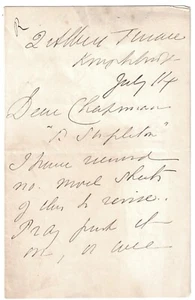 2 Albert Terrace
Knightsbridge
July 14
Dear Chapman
"B Stapleton"
I have received
no more sheets
of this to revise.
Pray push it
on, or we